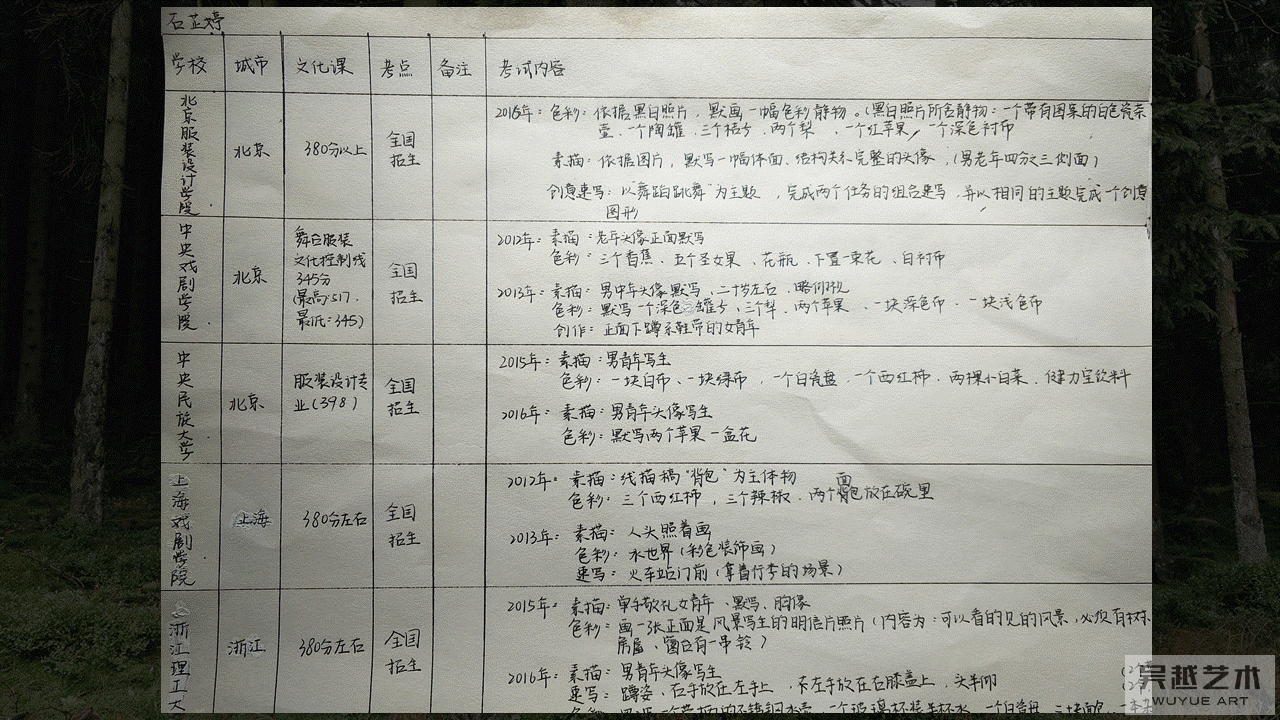 石芷婷
学校 城市 文化课 考点 备注 考试内容
北京服装设计学院 北京 380分以上 全国招生
2015年：色彩：依据黑白照片，默画一幅色彩静物。（黑白照片所含静物：一个带有图案的白色瓷茶
壶、一个陶罐，三个桔子，两个梨，一个红苹果，一个深色衬布
素描：依据图片，默写一幅体面、结构关系完整的头像，（男老年四分之三侧面）
创意速写：以"舞蹈跳舞"为主题，完成两个任务的组合速写，并以相同的主题完成一个创意
图形
中央戏剧学院 北京
舞台服装
文化控制线
345分
（最高：517，
最低：345）
全国招生
2012年：素描：老年头像正面默写
色彩：三个香蕉、五个圣女果、花瓶、下置一束花、白衬布
2013年：素描：男中年头像默写，二十岁左右，略俯视
色彩：默写一个深色罐子，三个梨，两个苹果、一块深色布、一块浅色布
创作：正面下蹲系鞋带的女青年
中央民族大学 北京
服装设计专
业（398）
全国招生
2015年：素描：男青年写生
色彩：一块白布、一块绿布，一个白瓷盘，一个西红柿，两棵小白菜，健力宝饮料
2016年：素描：男青年头像写生
色彩：默写两个苹果一盆花
上海戏剧学院 上海 380分左右 全国招生
2012年：素描：线描稿"背包"为主体物
色彩：三个西红柿，三个辣椒，两个面包放在碗里
2013年：素描：人头照着画
色彩：水世界（彩色装饰画）
速写：火车站门前（拿着行李的场景）
浙江理工大 浙江 380分左右 全国招生
2015年：素描：单手敬礼女青年、默写、胸像
色彩：画一张正面是风景写生的明信片照片（内容为：可以看的见的风景，必须有树木
房屋、窗台有一串铃）
2016年：素描：男青年头像写生
速写：蹲姿、右手放在左手上，左手放在右膝盖上，头半仰
吴越艺术
WUYUE ART